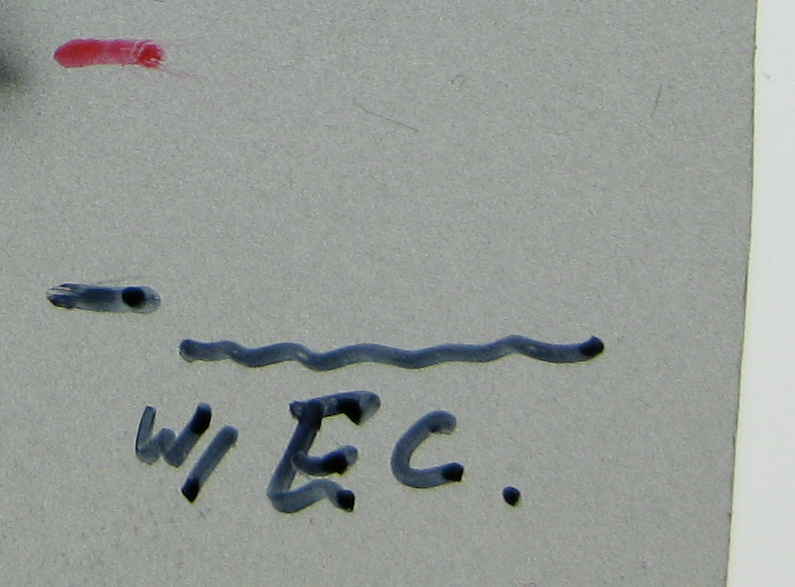 W/ EC.